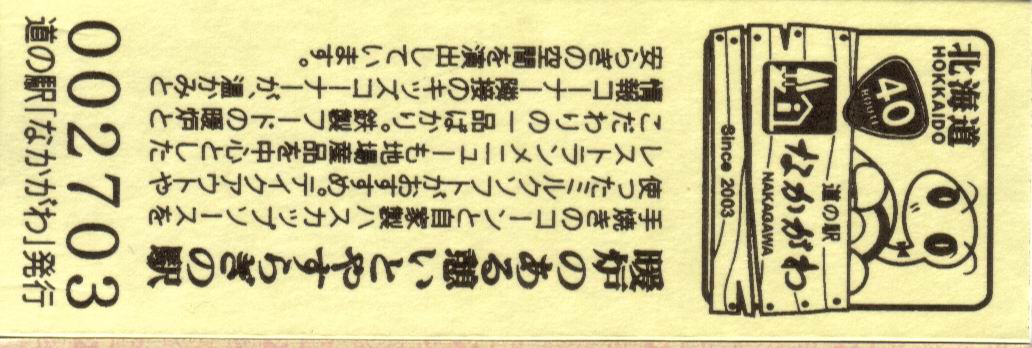 北海道
HOKKAIDO
40
ROUTE
道の駅
なかがわ
NAKAGAWA
Since 2003
暖炉のある憩いとやすらぎの駅
手焼きのコーンと自家製ハスカップソースを
使ったミルクソフトがおすすめ。テイクアウトや
レストランメニューも地場産品を中心とした
こだわりの一品ばかり。鉄製フードの暖炉と
情報コーナー隣接のキッズコーナーが、温かみと
安らぎの空間を演出しています。
002703
道の駅「なかがわ」発行